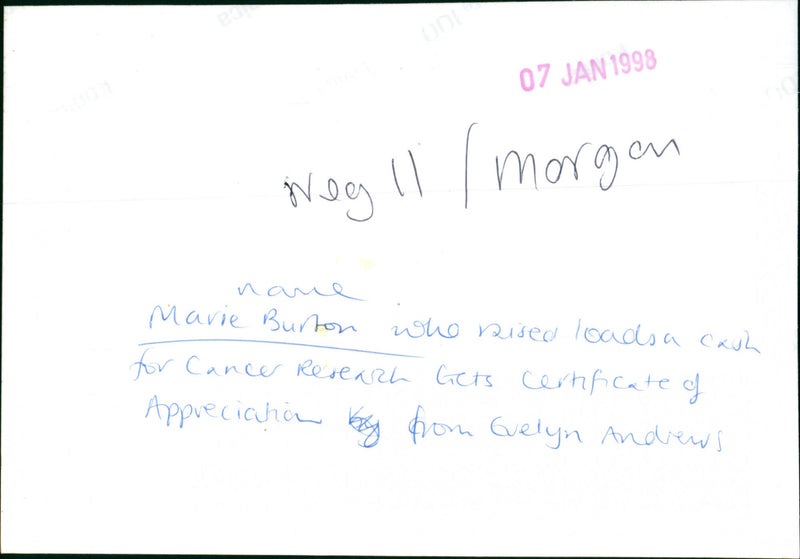 07 JAN 1998
Neg 11 / Morgan
name
Marie Burton who raised loadsa cash
for Cancer Research Gets Certificate of
Appreciation from Evelyn Andrews